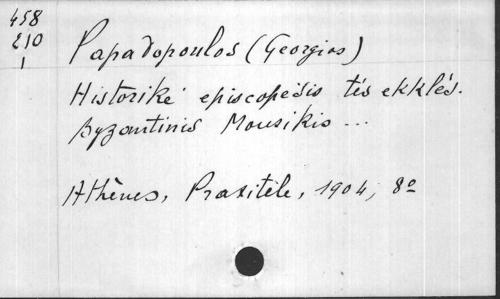 458
E10
1
Papadopoulos (Georgios)
Historikè episcopèsis tès ekklès.
Byzantinis Mousikis ...
Athènes, Praxitèle, 1904, 8º